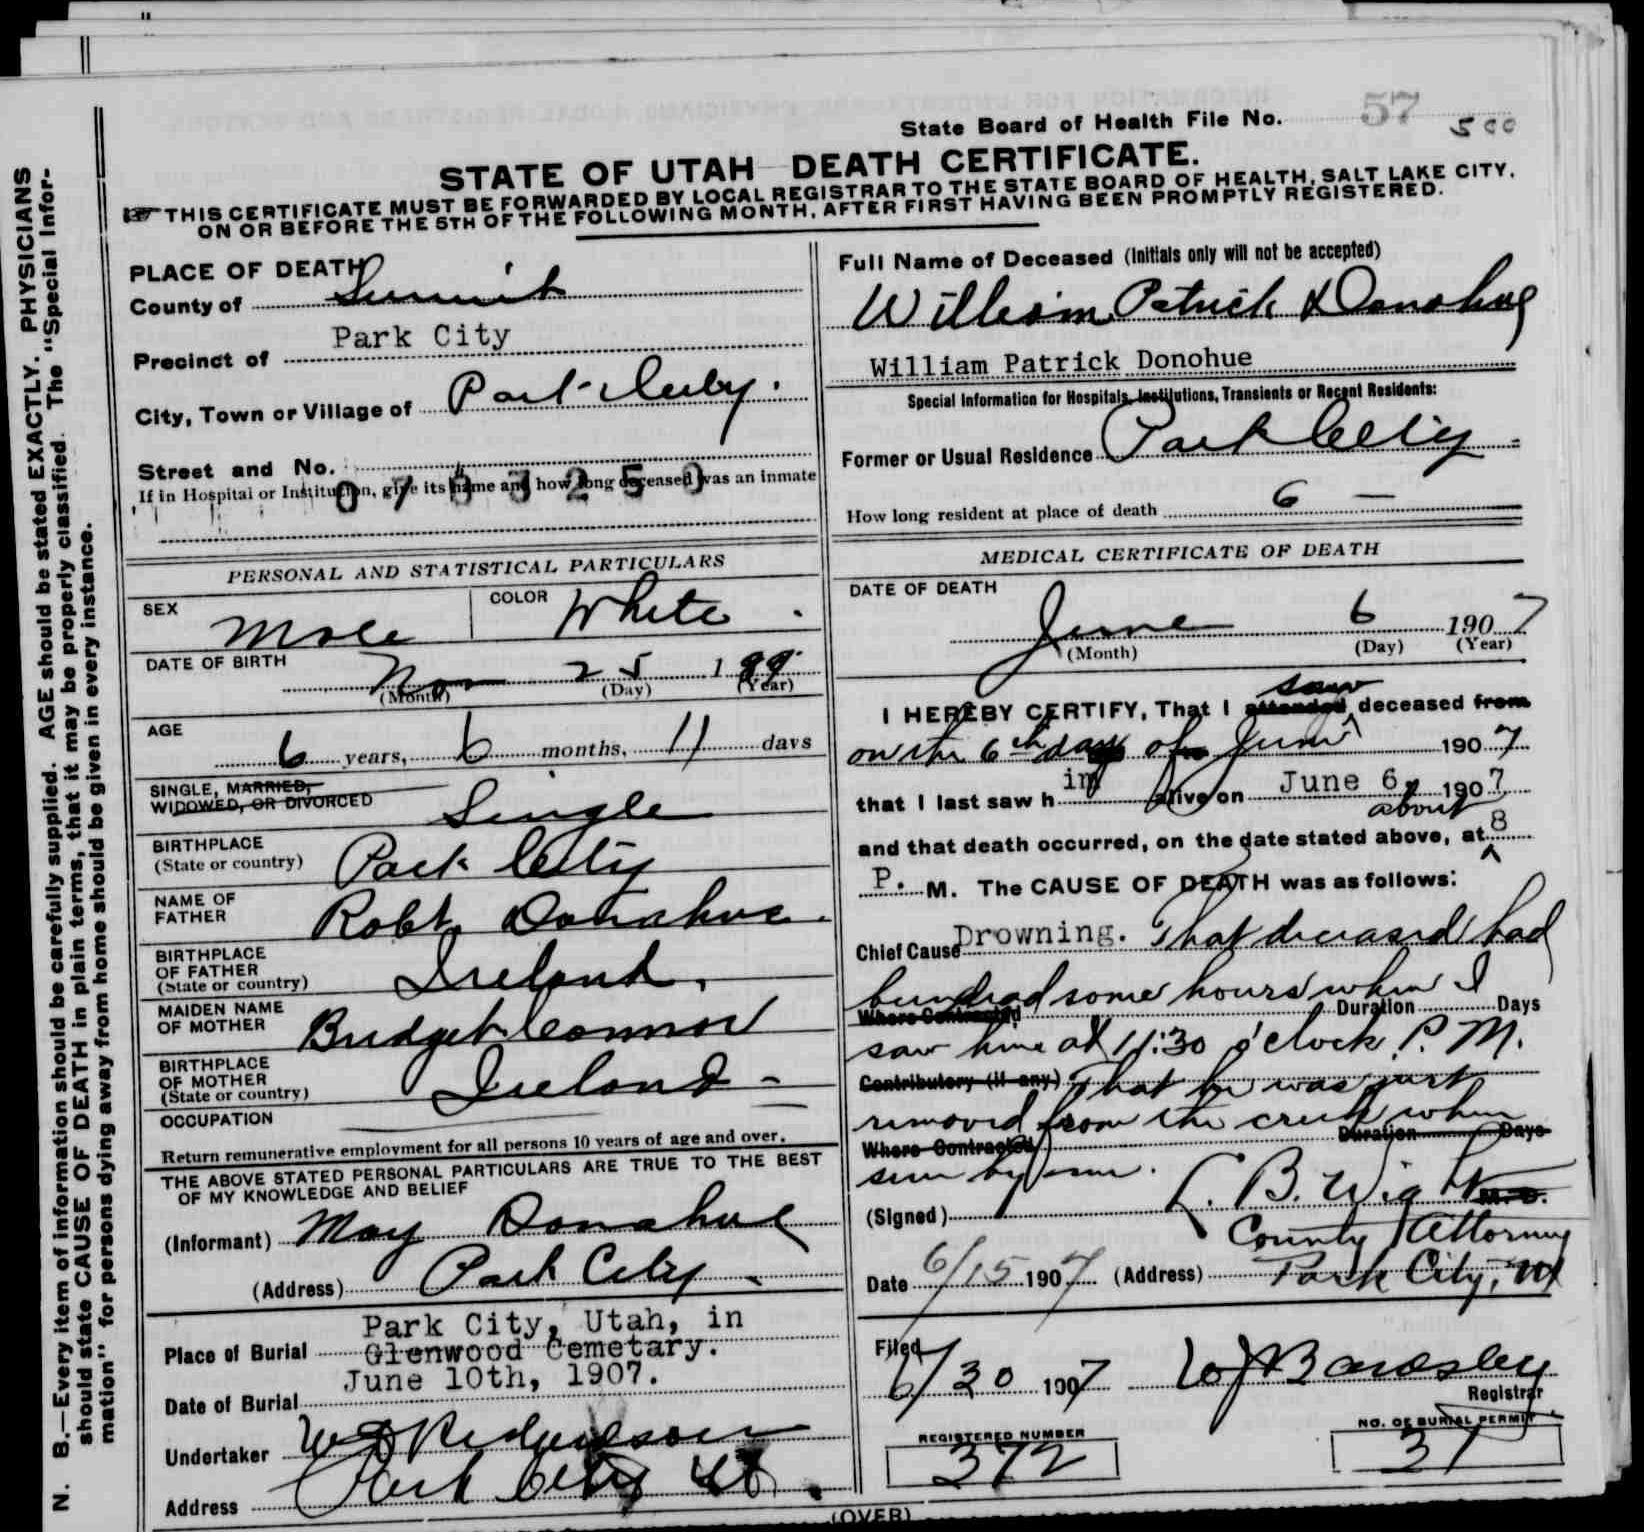 State Board of Health File No. 57 500
STATE OF UTAH DEATH CERTIFICATE.
THIS CERTIFICATE MUST BE FORWARDED BY LOCAL REGISTRAR TO THE STATE BOARD OF HEALTH, SALT LAKE CITY,
ON OR BEFORE THE 5TH OF THE FOLLOWING MONTH, AFTER FIRST HAVING BEEN PROMPTLY REGISTERED.
N. B.—Every item of information should be carefully supplied. AGE should be stated EXACTLY. PHYSICIANS
should state CAUSE OF DEATH in plain terms, that it may be properly classified. The "Special Infor-
mation" for persons dying away from home should be given in every instance.
PLACE OF DEATH
County of Summit
Park City
Precinct of
City, Town or Village of Park City.
Street and No.
If in Hospital or Institution, give its name and how long deceased was an inmate
SEX Male COLOR White
PERSONAL AND STATISTICAL PARTICULARS
DATE OF BIRTH Nov 25 1
(Month) (Day) (Year)
AGE 6 years, 6 months, 11 days
SINGLE, MARRIED,
WIDOWED, OR DIVORCED Single
BIRTHPLACE
(State or country) Park City
NAME OF
FATHER Robt. Donahue.
BIRTHPLACE
OF FATHER
(State or country) Ireland.
MAIDEN NAME
OF MOTHER Bridget Connor
BIRTHPLACE
OF MOTHER
(State or country) Ireland -
OCCUPATION
Return remunerative employment for all persons 10 years of age and over.
THE ABOVE STATED PERSONAL PARTICULARS ARE TRUE TO THE BEST
OF MY KNOWLEDGE AND BELIEF
(Informant) May Donahue
(Address) Park City
Park City, Utah, in
Place of Burial Glenwood Cemetary.
June 10th, 1907.
Date of Burial
Undertaker
Address Park City Ut.
Full Name of Deceased (Initials only will not be accepted)
William Patrick Donohue
William Patrick Donohue
Special Information for Hospitals, Institutions, Transients or Recent Residents:
Former or Usual Residence Park City
How long resident at place of death 6 —
MEDICAL CERTIFICATE OF DEATH
DATE OF DEATH
June 6 1907
(Month) (Day) (Year)
saw
I HEREBY CERTIFY, That I attended deceased from
on the 6th day of June 1907
that I last saw him alive on June 6, 1907
about
and that death occurred, on the date stated above, at 8
P. M. The CAUSE OF DEATH was as follows:
Chief Cause Drowning. That deceased had
been dead some hours when I
Where Contracted Duration Days
saw him at 11:30 o'clock P. M.
Contributory (if any) That he was just
removed from the creek when
Where Contracted Duration Days
seen by me.
(Signed) L. B. Wight M. D.
County Attorney
Date 6/15 1907 (Address) Park City, Ut
Filed
6/30 1907 Bardsley
Registrar
REGISTERED NUMBER
372
NO. OF BURIAL PERMIT
37
(OVER)